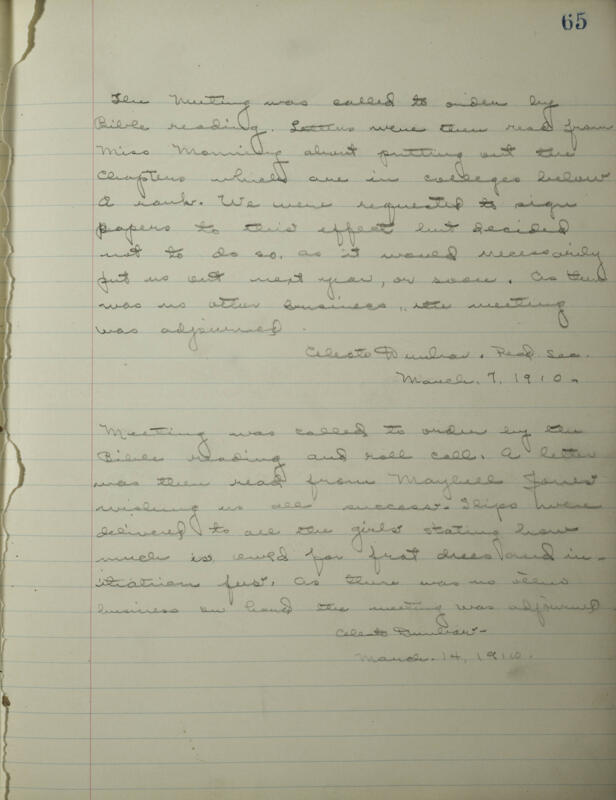 65
The Meeting was called to order by
Bible reading. Letters were then read from
Miss Manning about putting out the
Chapters which are in colleges below
A rank. We were requested to sign
papers to this effect but decided
not to do so, as it would necessarily
put us out next year, or soon. As there
was no other business, the meeting
was adjourned.
Celeste Dunbar. Sec.
March. 7, 1910.
Meeting was called to order by the
Bible reading and roll call. A letter
was then read from Maybell Jones
wishing us all success. Slips were
delivered to all the girls stating how
much is owed for frat dues and in-
itiation fees. As there was no
business on hand the meeting was adjourned
Celeste Dunbar-
March. 14, 1910.